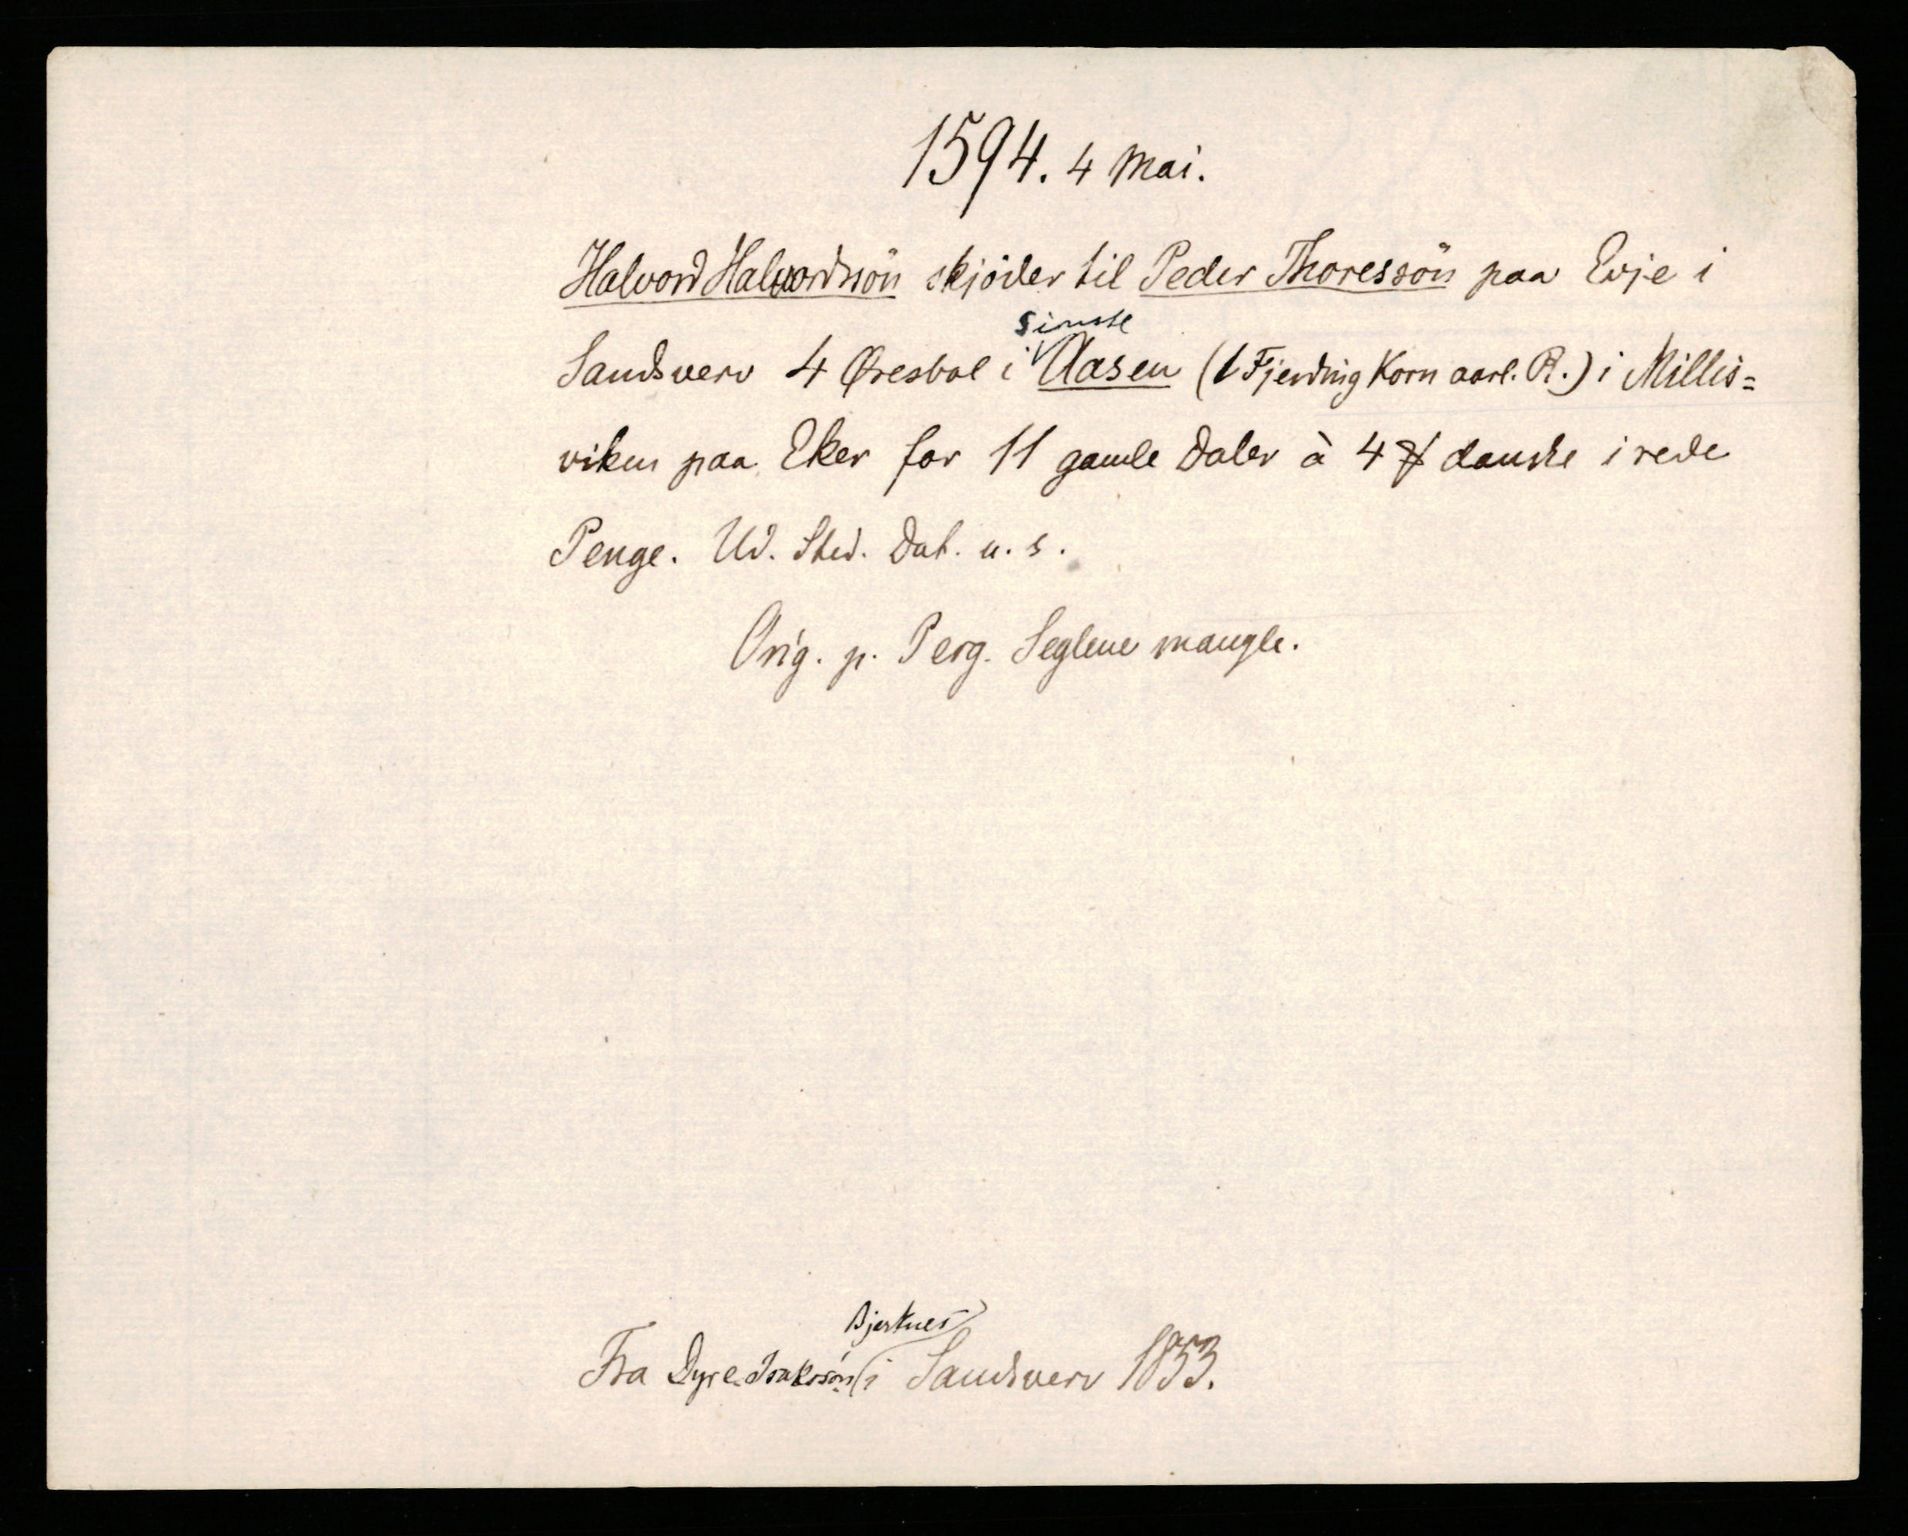 1594. 4 Mai.
Halvord Halvordssön skjöder til Peder Thoressön paa Evje i
simste
Sandsverv 4 Øresbol i Aasen (1 Fjerding Korn aarl. R.) i Millis=
viken paa Eker for 11 gamle Daler à 4 danske i rede
Penge. Ud. Sted. Dat. u. s.
Orig. p. Perg. Seglene mangle.
Bjerknes
Fra Dyre Isakssön i Sandsverv 1853.